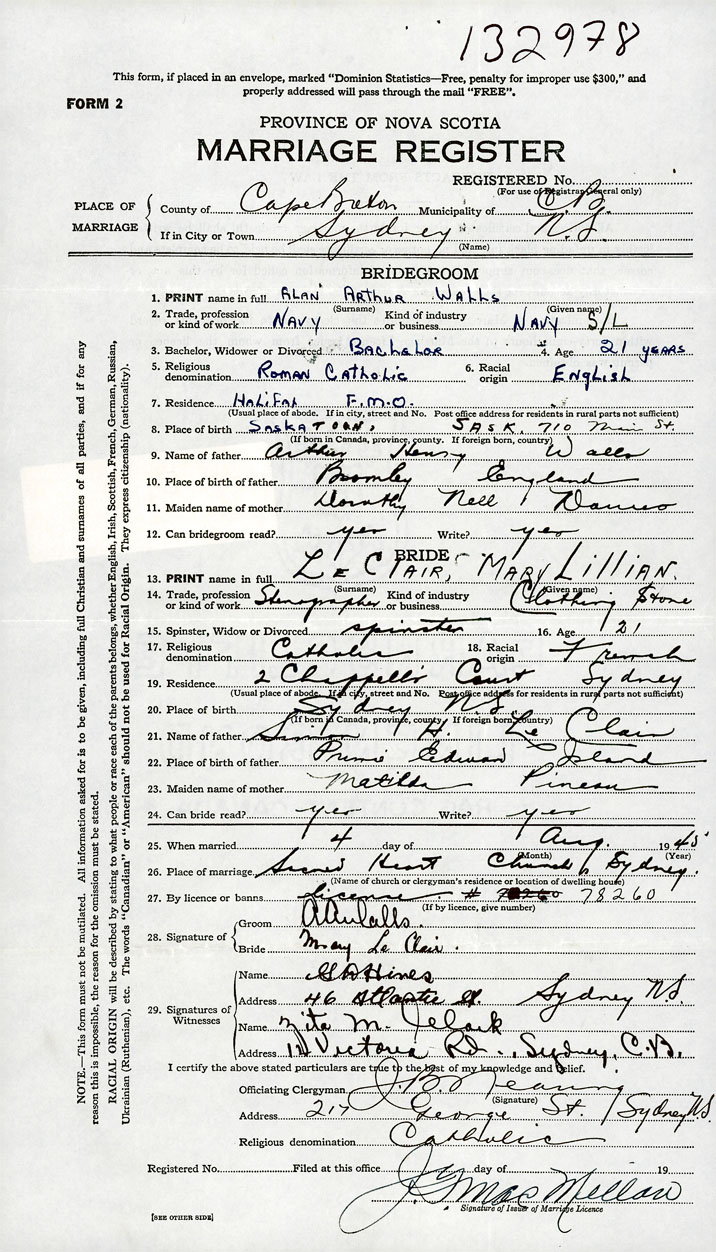 132978
This form, if placed in an envelope, marked "Dominion Statistics—Free, penalty for improper use $300," and
properly addressed will pass through the mail "FREE".
FORM 2
PROVINCE OF NOVA SCOTIA
MARRIAGE REGISTER
REGISTERED No.
(For use of Registrar General only)
PLACE OF MARRIAGE
County of Cape Breton Municipality of C.B.
If in City or Town Sydney N.S.
(Name)
BRIDEGROOM
1. PRINT name in full ALAN ARTHUR WALLS
(Surname) (Given name)
2. Trade, profession or kind of work NAVY Kind of industry or business NAVY S/L
3. Bachelor, Widower or Divorced BACHELOR 4. Age 21 YEARS
5. Religious denomination ROMAN CATHOLIC 6. Racial origin ENGLISH
7. Residence HALIFAX F.M.O.
(Usual place of abode. If in city, street and No. Post office address for residents in rural parts not sufficient)
8. Place of birth SASKATOON, SASK, 710 Main St.
(If born in Canada, province, county. If foreign born, country)
9. Name of father Arthur Henry Walls
10. Place of father Bromley England
11. Maiden name of mother Dorothy Nell
12. Can bridegroom read? yes Write? yes
BRIDE
13. PRINT name in full LE CLAIR, MARY LILLIAN.
(Surname) (Given name)
14. Trade, profession or kind of work Stenographer Kind of industry or business Clothing Store
15. Spinster, Widow or Divorced spinster 16. Age 21
17. Religious denomination Catholic 18. Racial origin French
19. Residence 2 Chappell's Court Sydney
(Usual place of abode. If in city, street and No. Post office address for residents in rural parts not sufficient)
20. Place of birth Sydney N.S.
(If born in Canada, province, county. If foreign born, country)
21. Name of father Simon H. Le Clair
22. Place of birth of father Prince Edward Island
23. Maiden name of mother Matilda Pineau
24. Can bride read? yes Write? yes
25. When married 4 day of Aug. 1945
(Month) (Year)
26. Place of marriage Sacred Heart Church, Sydney.
(Name of church or clergyman's residence or location of dwelling house)
27. By licence or banns license # 78260
(If by licence, give number)
28. Signature of
Groom AAWalls.
Bride Mary Le Clair.
29. Signatures of Witnesses
Name Hines
Address 46 Atlantic St. Sydney N.S.
Name Zita M.
Address Victoria Rd., Sydney, C.B.
I certify the above stated particulars are true to the best of my knowledge and belief.
Officiating Clergyman J.B.
(Signature)
Address 217 George St. / Sydney N.S.
Religious denomination Catholic
Registered No. Filed at this office day of 19
J G MacMellan
Signature of Issuer of Marriage Licence
[SEE OTHER SIDE]
NOTE.—This form must not be mutilated. All information asked for is to be given, including full Christian and surnames of all parties, and if for any
reason this is impossible, the reason for the omission must be stated.
RACIAL ORIGIN will be described by stating to what people or race each of the parents belongs, whether English, Irish, Scottish, French, German, Russian,
Ukrainian (Ruthenian), etc. The words "Canadian" or "American" should not be used for Racial Origin. They express citizenship (nationality).